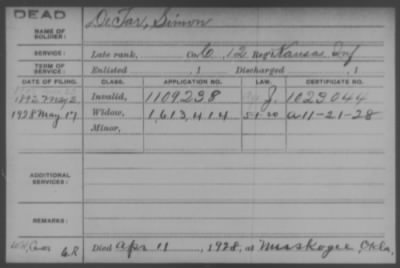 DEAD
NAME OF SOLDIER: DeTar, Simon
SERVICE: Late rank, Co. C, 12 Reg't Kansas Inf
TERM OF SERVICE: Enlisted , 1 Discharged , 1
DATE OF FILING. CLASS. APPLICATION NO. LAW. CERTIFICATE NO.
1892 May 2 Invalid, 1109238 J. 1023044
1928 May 17 Widow, 1,613,414 5-1-20 a 11-21-28
Minor,
ADDITIONAL SERVICES:
REMARKS:
Died Apr 11, 1928, at Muskogee, Okla.